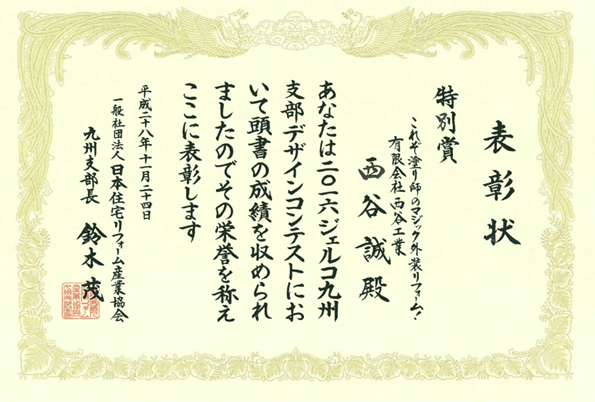 表彰状
特別賞
これぞ塗り師のマジック外装リフォーム！
有限会社 西谷工業
西谷誠殿
あなたは二〇一六ジェルコ九州
支部デザインコンテストにお
いて頭書の成績を収められ
ましたのでその栄誉を称え
ここに表彰します
平成二十八年十一月二十四日
一般社団法人日本住宅リフォーム産業協会
九州支部長 鈴木茂